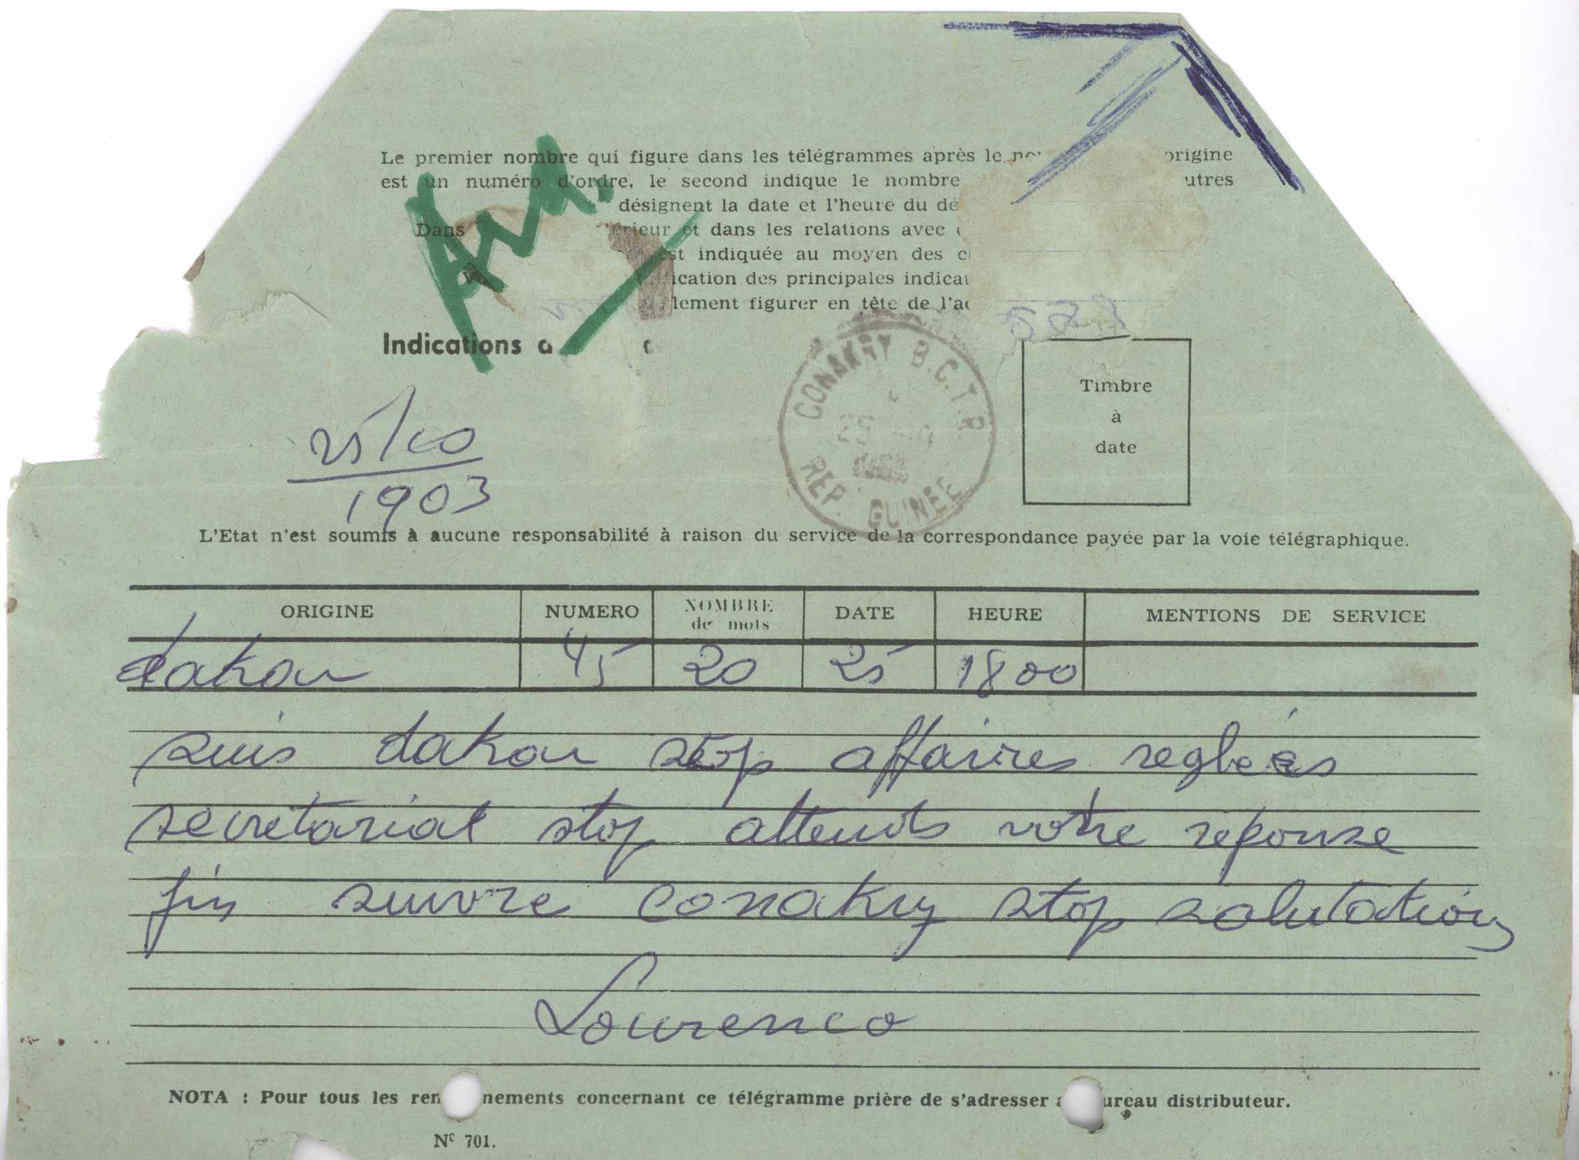 Le premier nombre qui figure dans les télégrammes après le origine
est un numéro d'ordre, le second indique le nombre utres
désignent la date et l'heure du dé
Dans érieur et dans les relations avec
est indiquée au moyen des c
ication des principales indicat
lement figurer en tête de l'ad
Am.
Indications
CONAKRY B.C.T.R.
REP. GUINEE
Timbre
à
date
25/10
1903
L'Etat n'est soumis à aucune responsabilité à raison du service de la correspondance payée par la voie télégraphique.
ORIGINE NUMERO NOMBRE de mots DATE HEURE MENTIONS DE SERVICE
dakar 45 20 25 1800
suis dakar stop affaires reglées
secretariat stop attends votre reponse
fin suivre conakry stop salutations
Lourenco
NOTA : Pour tous les ren nements concernant ce télégramme prière de s'adresser ureau distributeur.
Nº 701.